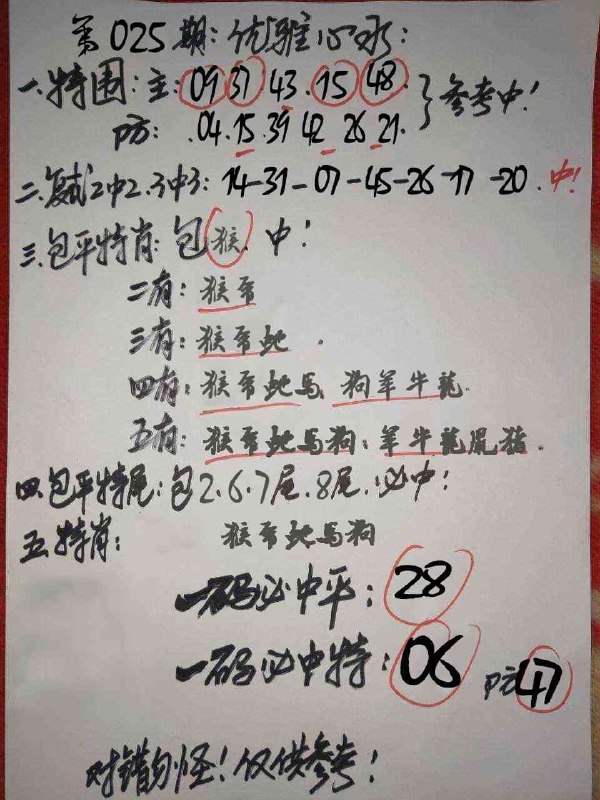 第025期:优雅心水:
一.特围:主:09 37 43.15 48.
防:.04.15.39 42.26 21.
}参考中!
二.复式2中2.3中3:14-31-07-45-26-17-20.中!
三.包平特肖:包猴.中!
二有:猴帝
三有:猴帝蛇.
四有:猴帝蛇马.狗羊牛龍.
五有:猴帝蛇马狗:羊牛龍鼠猪.
四.包平特尾:包2.6.7尾.8尾.必中!
五.特肖:猴帝蛇马狗
一码必中平:28
一码必中特:06 防47
对错勿怪!仅供参考!